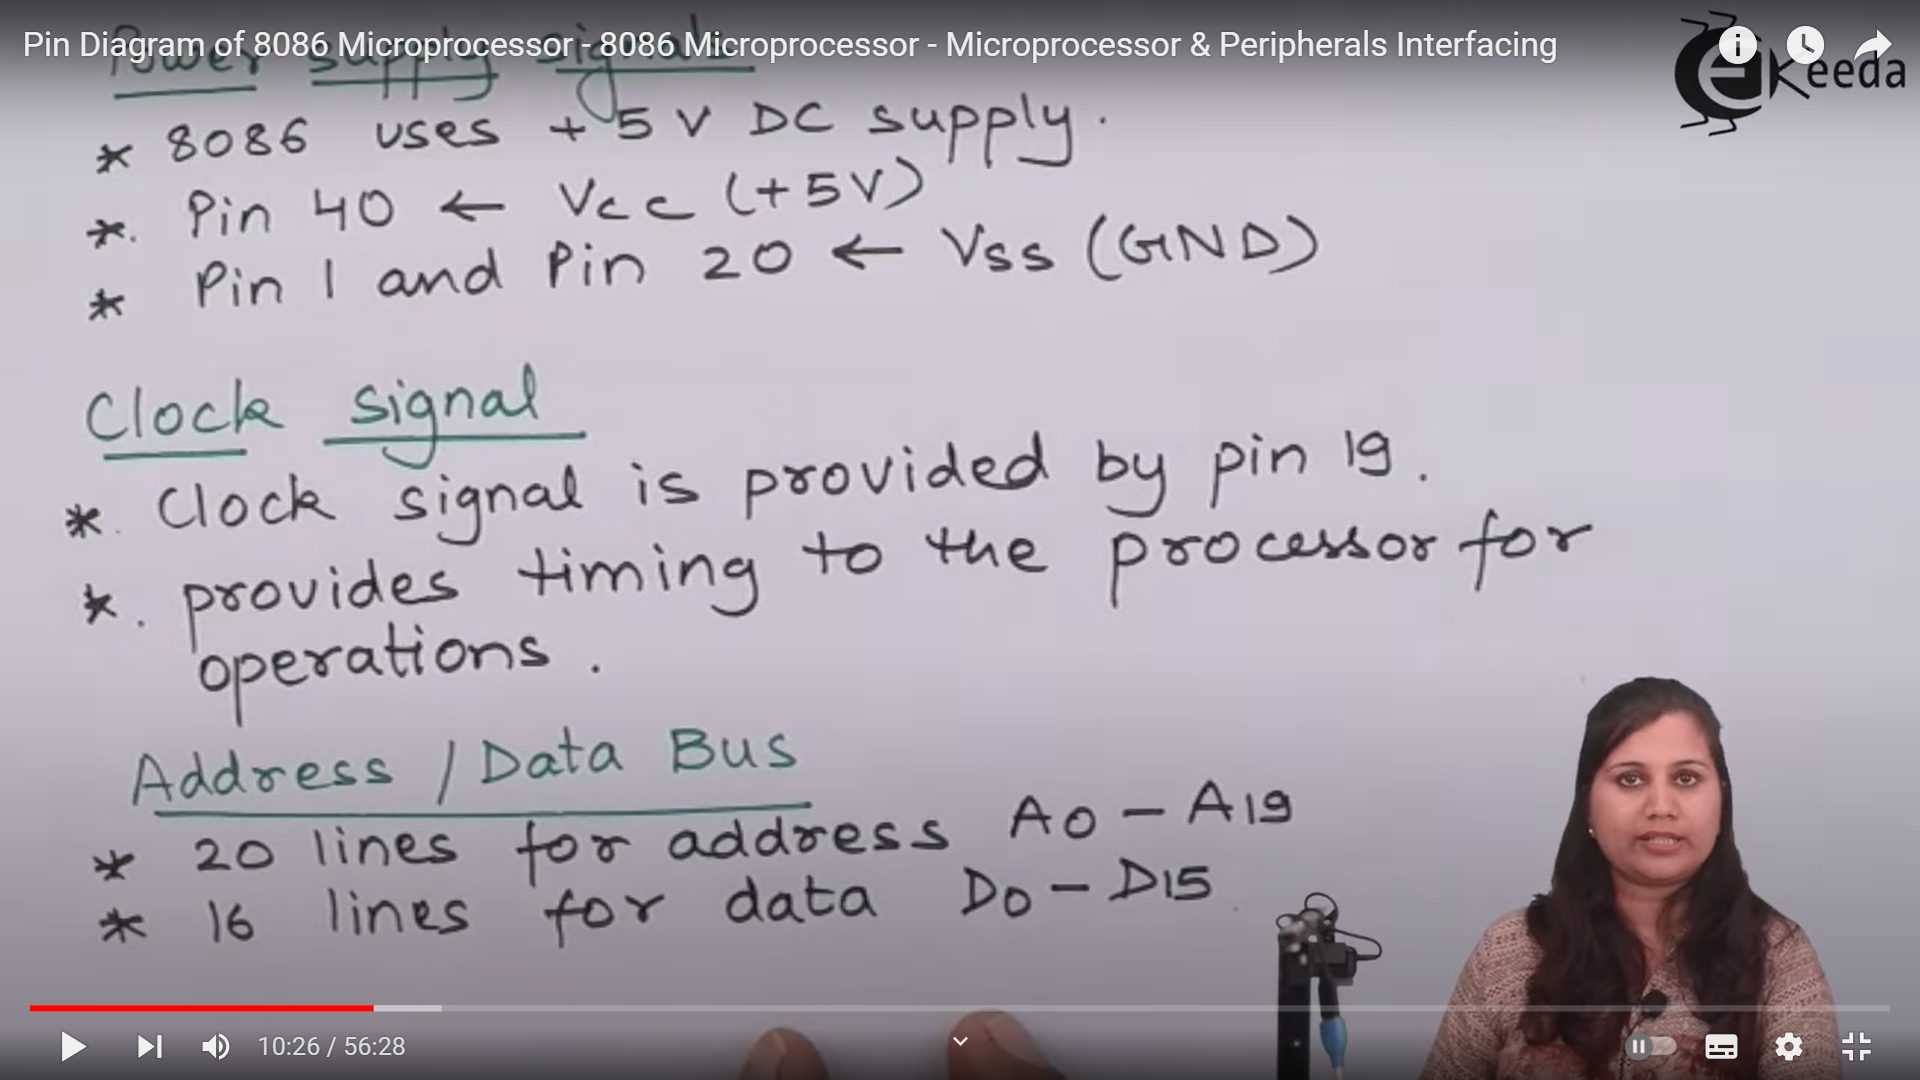 Pin Diagram of 8086 Microprocessor - 8086 Microprocessor - Microprocessor & Peripherals Interfacing
eKeeda
Power supply signals
* 8086 uses +5V DC supply.
*. Pin 40 ← Vcc (+5V)
* Pin 1 and Pin 20 ← Vss (GND)
Clock signal
*. Clock signal is provided by pin 19.
*. provides timing to the processor for
operations.
Address / Data Bus
* 20 lines for address A0 - A19
* 16 lines for data D0 - D15
10:26 / 56:28